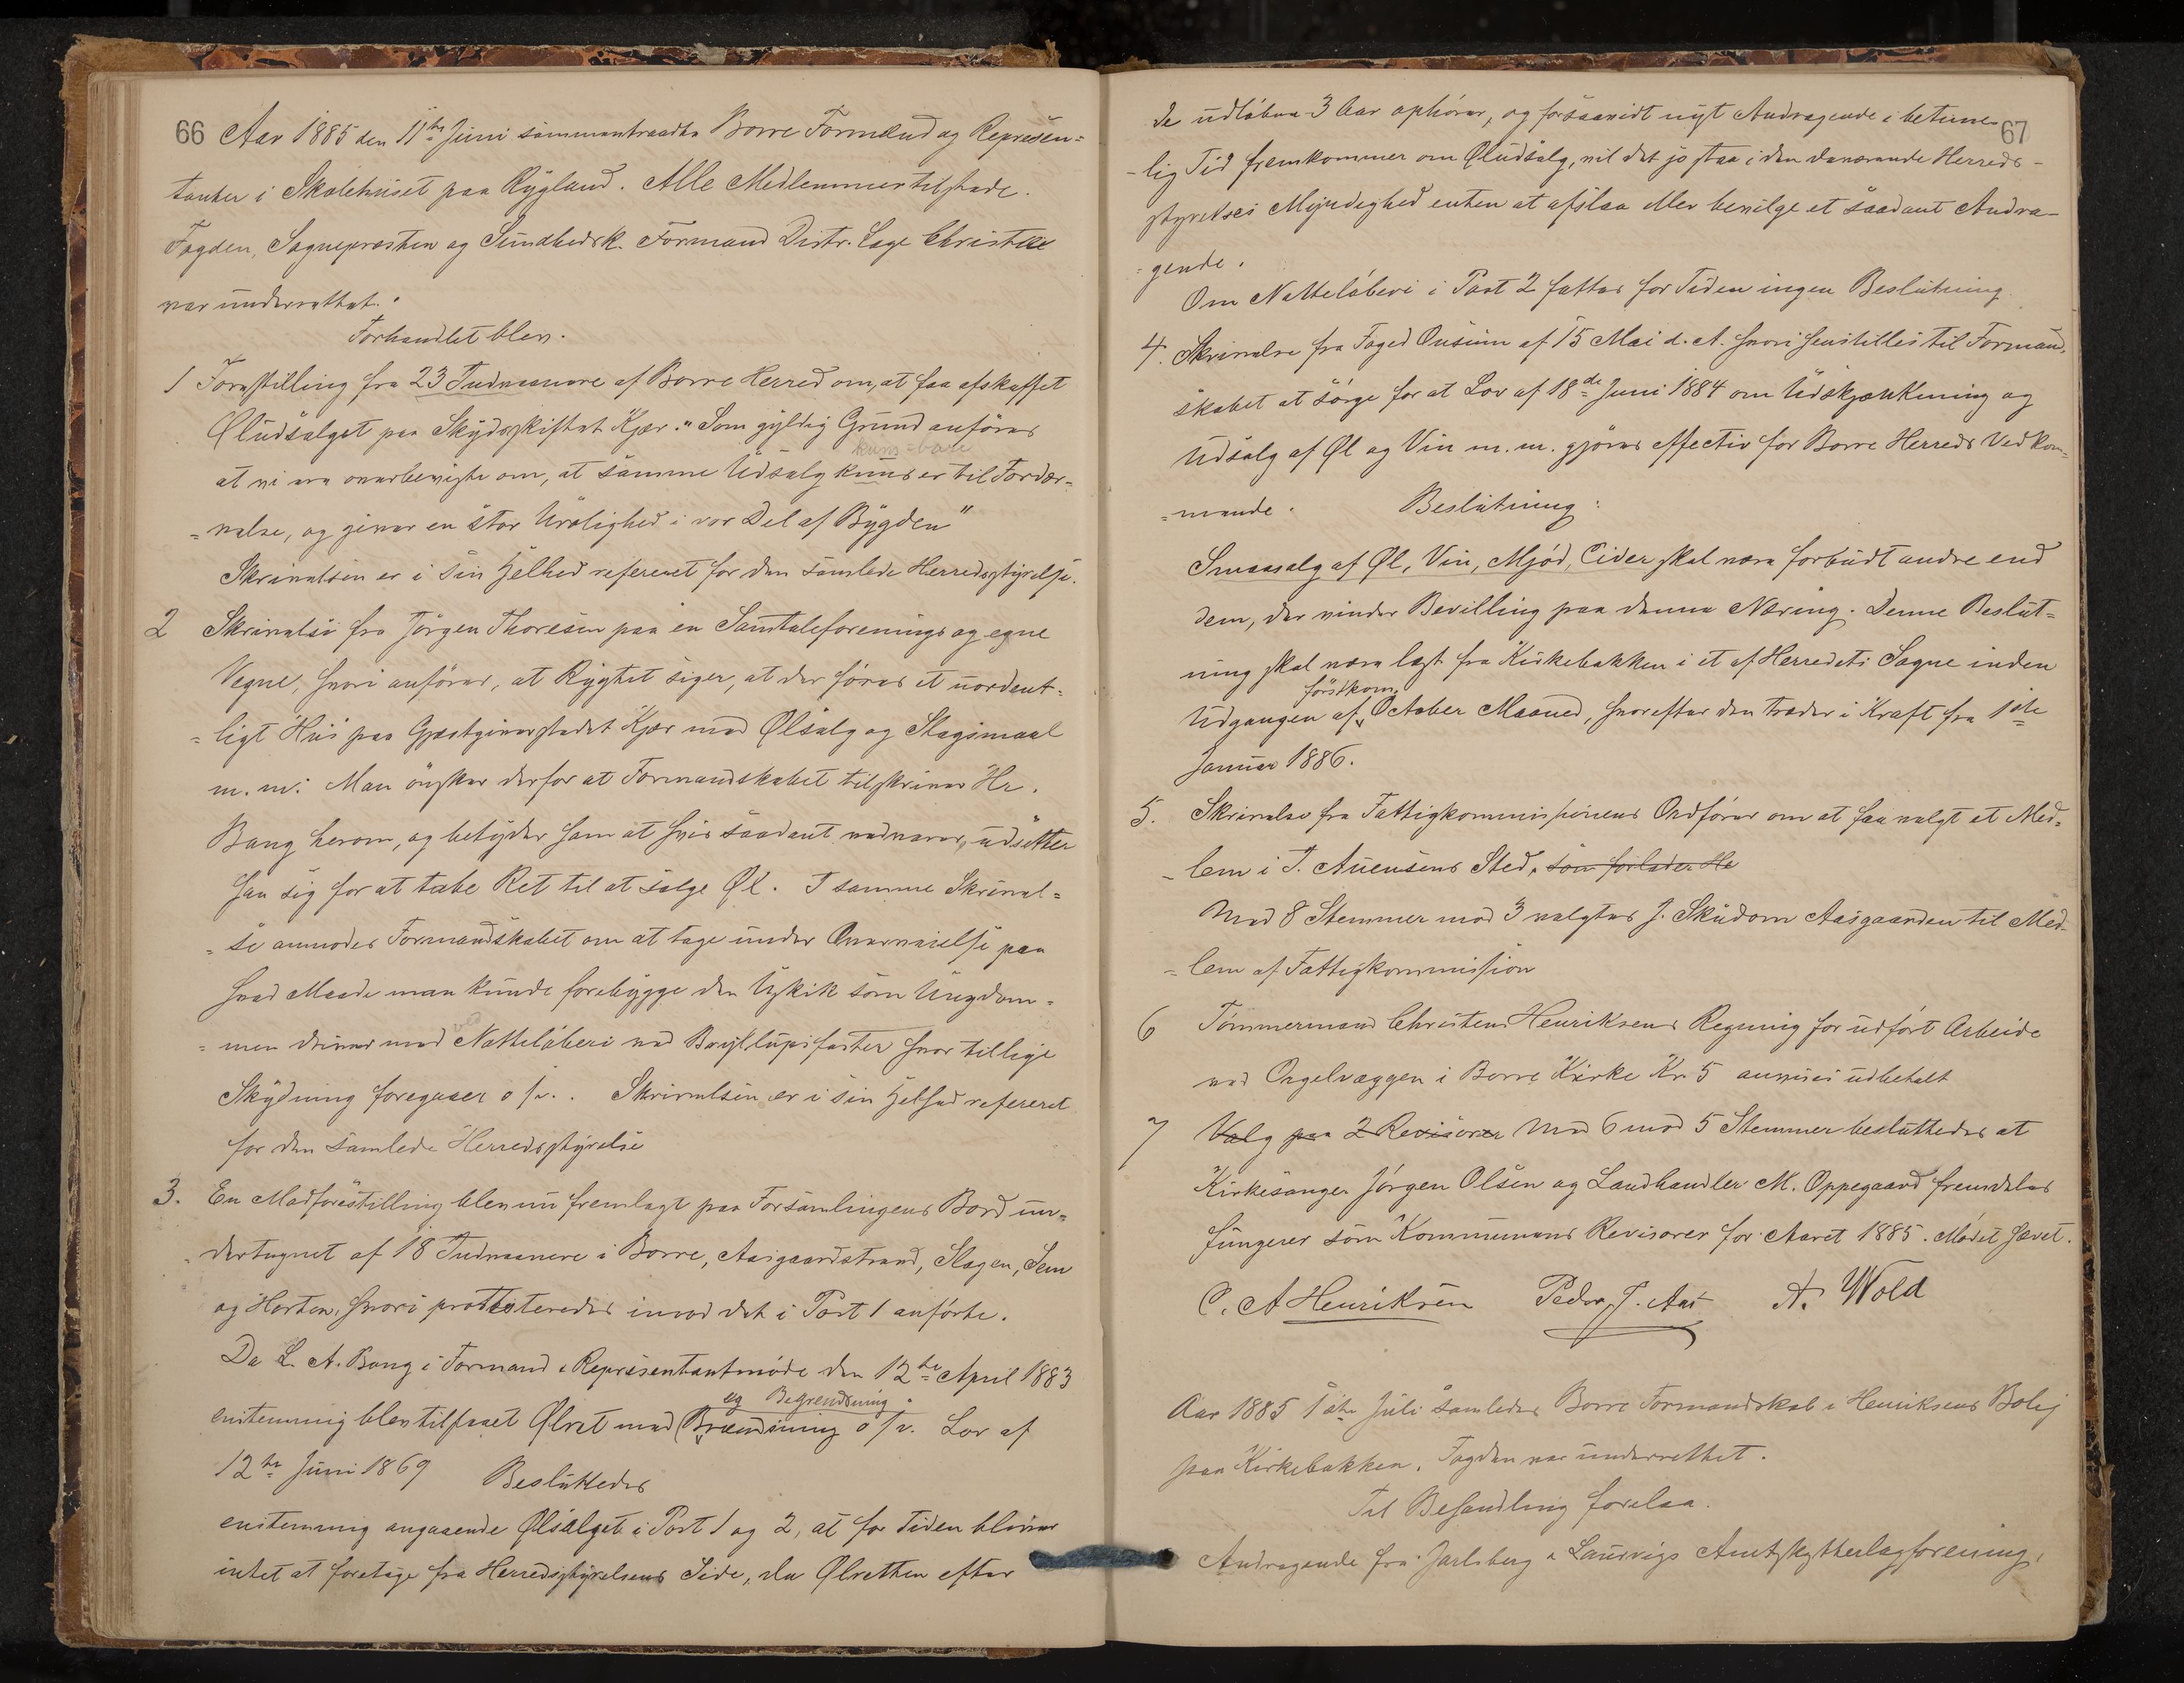 66 Aar 1885 den 11te Juni sammentraadte Borre Formænd og Represen=
tanter i Skolehuset paa Rygland. Alle Medlemmer tilstede.
Fogden, Sognepræsten og Sundhedsk. Formand Distr. Læge Christie
var underrettet.
Forhandlet blev.
1 Forestilling fra 23 Indvaanere af Borre Herred om, at faa afskaffet
Øludsalget paa Skydsskiftet Kjær. "Som gyldig Grund anføres
kuns=bare
at vi ere overbeviste om, at samme Udsalg kuns er til Fordær=
=velse, og giver en stor Urolighed i vor Del af Bygden"
Skrivelsen er i sin Helhed refereret for den samlede Herredsstyrelse.
2 Skrivelse fra Jørgen Thoresen paa en Samtaleforenings og egne
Vegne, hvori anføres, at Rygtet siger, at der føres et uordent=
=ligt Hus paa Gjæstgiverstedet Kjær med Ølsalg og Slagsmaal
m. m. Man ønsker derfor at Formandskabet tilskriver Hr.
Bang herom, og betyder ham at hvis saadant vedvarer, udsætter
han sig for at tabe Ret til at sælge Øl. I samme Skrivel=
=se anmodes Formandskabet om at tage under Overveielse paa
hvad Maade man kunde forebygge den Uskik som Ungdom=
ved
=men driver med Natteløberi ved Bryllupsfester hvor tillige
Skydning foregaaer o s v. Skrivelsen er i sin Helhed refereret
for den samlede Herredsstyrelse
3. En Modforestilling blev nu fremlagt paa Forsamlingens Bord un=
dertegnet af 18 Indvaanere i Borre, Aasgaardstrand, Slagen, Sem
og Horten, hvori protesteredes imod det i Post 1 anførte.
Da L. A. Bang i Formand & Representantmøde den 12te April 1883
og Begrendsning
enstemmig blev tilstaaet Ølret med (Brændsning o s v. Lov af
12te Juni 1869 Besluttedes
enstemmig angaaende Ølsalget i Post 1 og 2, at for Tiden bliver
intet at foretage fra Herredsstyrelsens Side, da Ølretten efter
67
de udløbne 3 Aar ophører, og forsaavidt nyt Andragende i betime-
-lig Tid fremkommer om Øludsalg, vil det jo staa i den daværende Herreds-
styrelses Myndighed enten at afslaa eller bevilge et saadant Andra-
=gende.
Om Natteløberi i Post 2 fattes for Tiden ingen Beslutning
4. Skrivelse fra Foged Ousum af 15 Mai d. A. hvori henstilles til Formand,
skabet at sørge for at Lov af 18de Juni 1884 om Udskjænkning og
Udsalg af Øl og Vin m. m. gjøres effectiv for Borre Herreds Vedkom=
=mende. Beslutning:
Smaasalg af Øl, Vin, Mjød, Cider skal være forbudt andre end
dem, der vinder Bevilling paa denne Næring. Denne Beslut=
ning skal være læst fra Kirkebakken i et af Herredets Sogne inden
førstkom.
Udgangen af October Maaned, hvorefter den træder i Kraft fra 1ste
Januar 1886.
5. Skrivelse fra Fattigkommissionens Ordfører om at faa valgt et Med=
-lem i T. Auensens Sted, som forlader He
Med 8 Stemmer mod 3 valgtes J. Skudom Aasgaarden til Med-
=lem af Fattigkommission
6 Tømmermand Christens Henriksens Regning for udført Arbeide
ved Orgelvæggen i Borre Kirke Kr 5 anvises udbetalt
7 Valg paa 2 Revisorer Med 6 mod 5 Stemmer besluttedes at
Kirkesanger Jørgen Olsen og Landhandler M. Oppegaard fremdeles
fungerer som Kommunens Revisorer for Aaret 1885. Mødet hævet.
C. A Henriksen Peder J. Aas A. Wold
Aar 1885 1ste Juli samledes Borre Formandskab i Henriksens Bolig
paa Kirkebakken. Fogden var underrettet.
Til Behandling forelaa.
Andragende fra Jarlsberg & Laurvigs Amtsskytterlagforening,